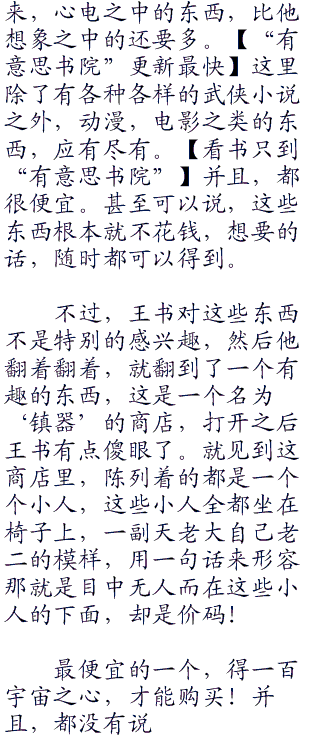 来，心电之中的东西，比他
想象之中的还要多。【“有
意思书院”更新最快】这里
除了有各种各样的武侠小说
之外，动漫，电影之类的东
西，应有尽有。【看书只到
“有意思书院”】并且，都
很便宜。甚至可以说，这些
东西根本就不花钱，想要的
话，随时都可以得到。
不过，王书对这些东西
不是特别的感兴趣，然后他
翻着翻着，就翻到了一个有
趣的东西，这是一个名为
‘镇器’的商店，打开之后
王书有点傻眼了。就见到这
商店里，陈列着的都是一个
个小人，这些小人全都坐在
椅子上，一副天老大自己老
二的模样，用一句话来形容
那就是目中无人而在这些小
人的下面，却是价码！
最便宜的一个，得一百
宇宙之心，才能购买！并
且，都没有说